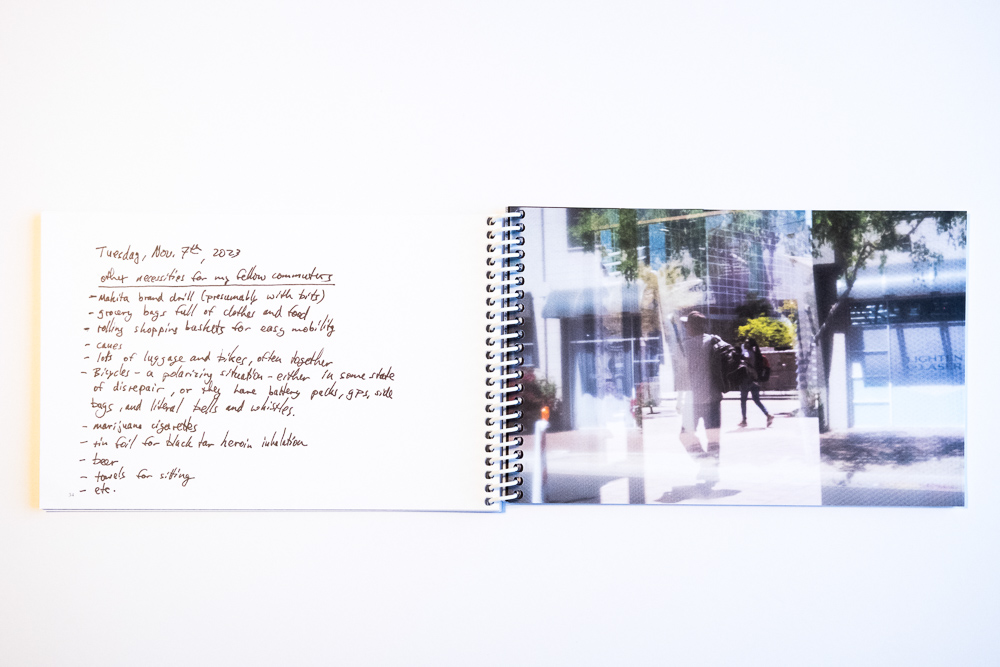 Tuesday, Nov. 7th, 2023
other necessities for my fellow commuters
- Makita brand drill (presumably with bits)
- grocery bags full of clothes and food
- rolling shopping baskets for easy mobility
- canes
- lots of luggage and bikes, often together
- Bicycles - a polarizing situation - either in some state
of disrepair, or they have battery packs, gps, side
bags, and literal bells and whistles.
- marijuana cigarettes
- tin foil for black tar heroin inhalation
- beer
- towels for sitting
- etc.
LIGHTEN
LASER